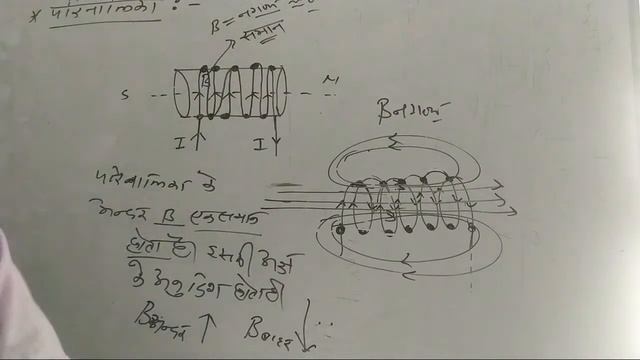 * परिनालिका :-
B = नगण्य ≈ 0
समान
B
S
N
I
I
B नगण्य
परिनालिका के
अन्दर B एकसमान
होता है। इसकी अक्ष
के अनुदिश होता है।
B अन्दर ↑ B बाहर ↓